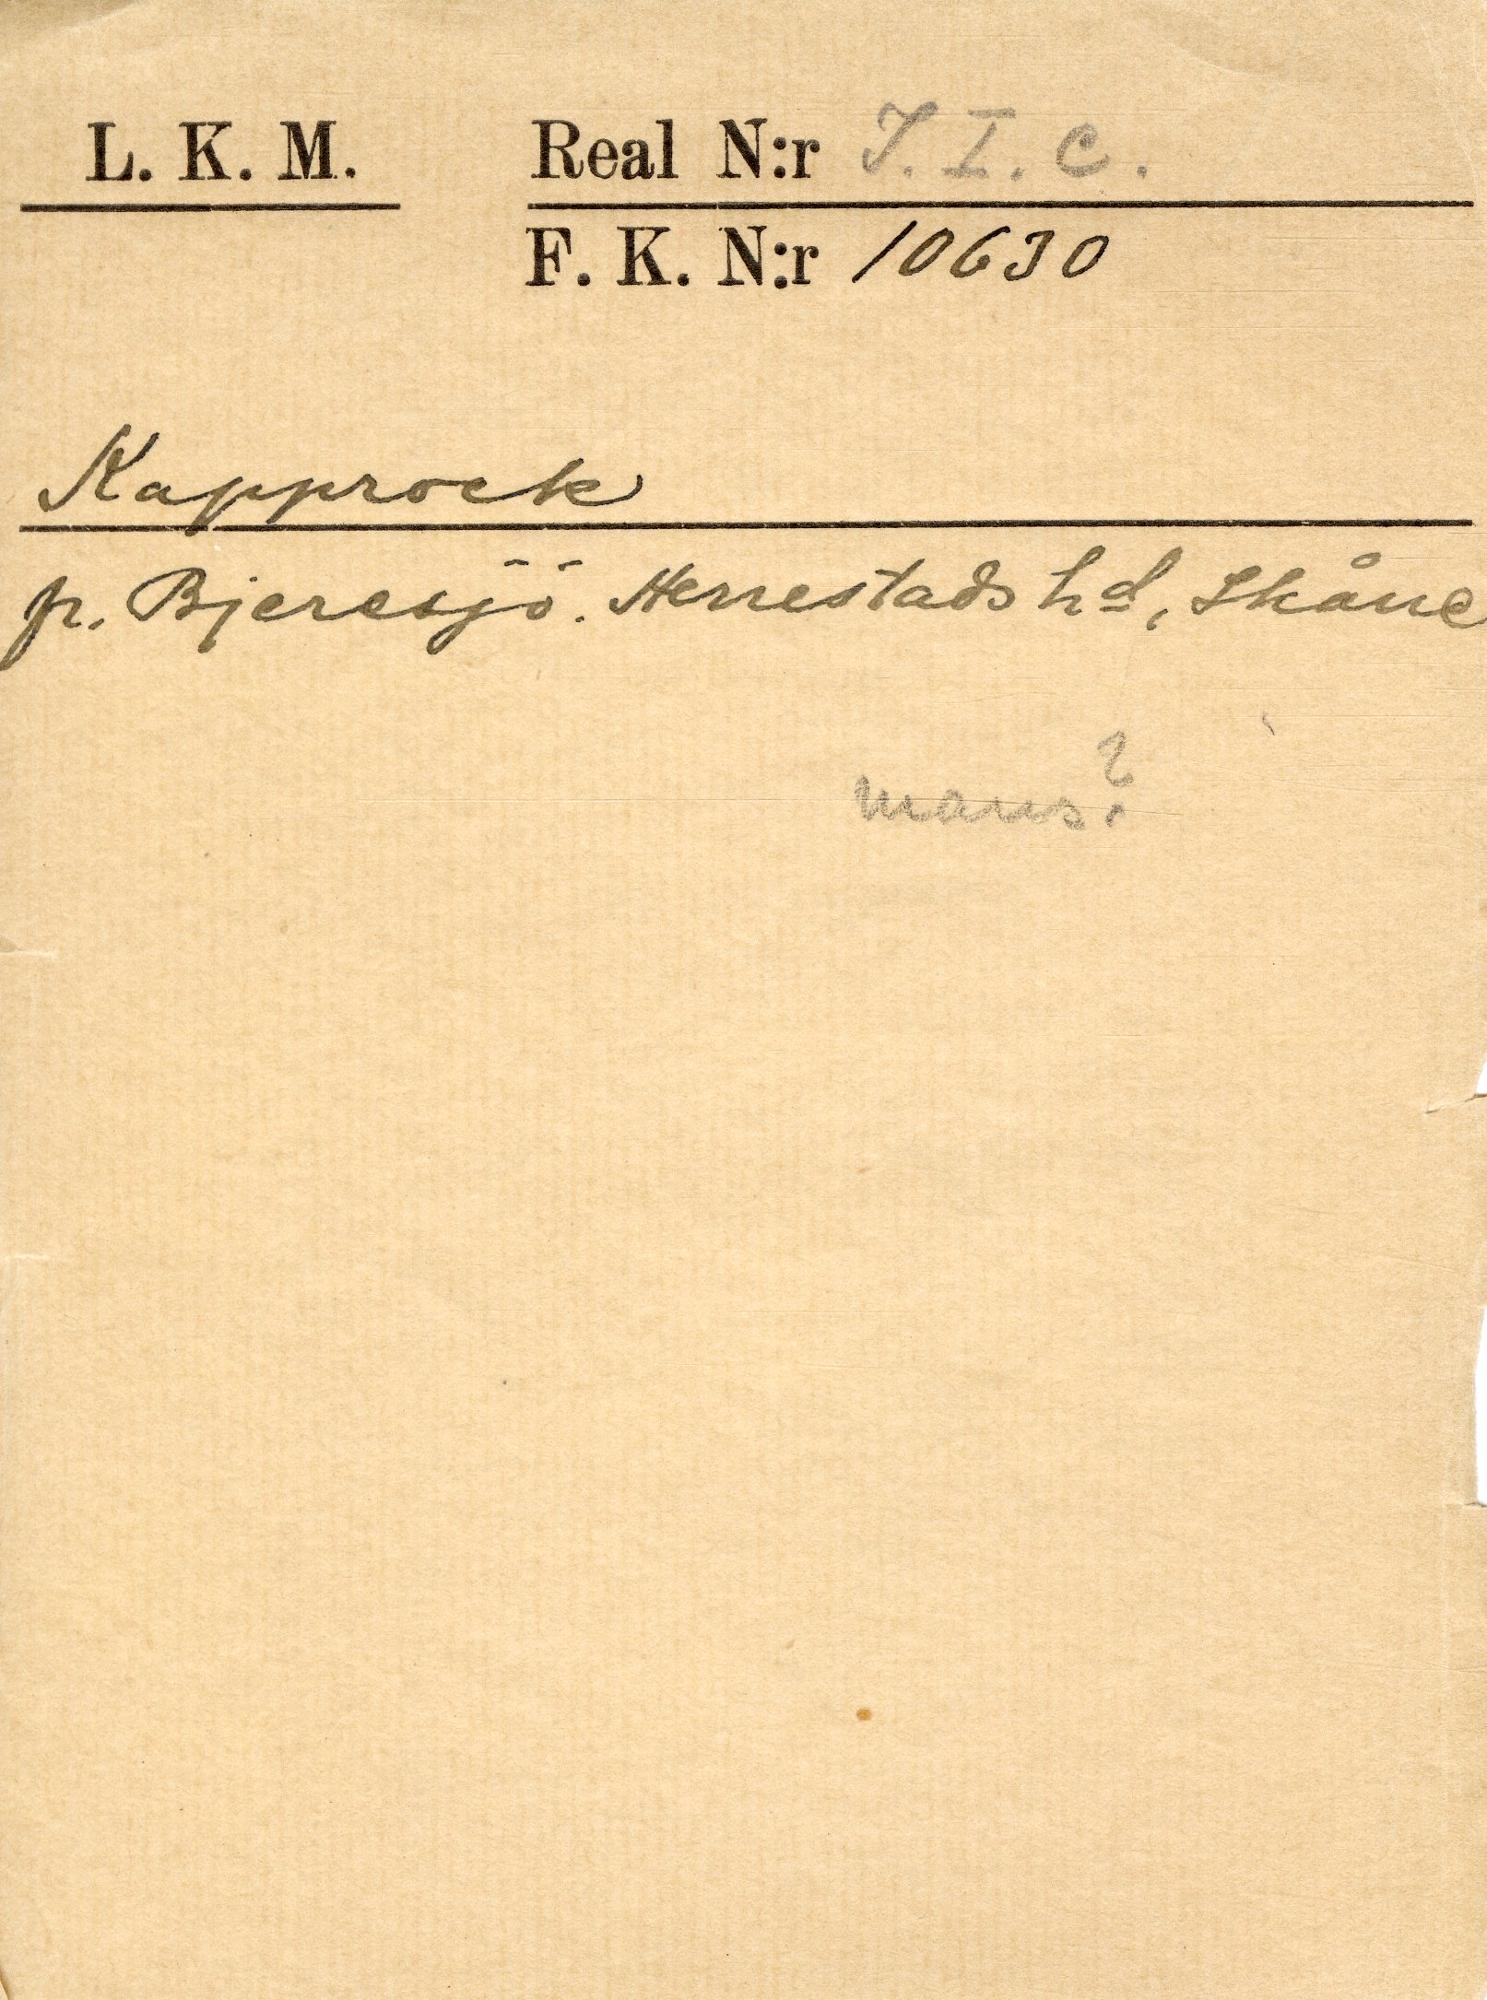 L. K. M.
Real N:r J. I. c.
F. K. N:r 10630
Kapprock
fr. Bjeresjö. Herrestads hd, Skåne
mans?